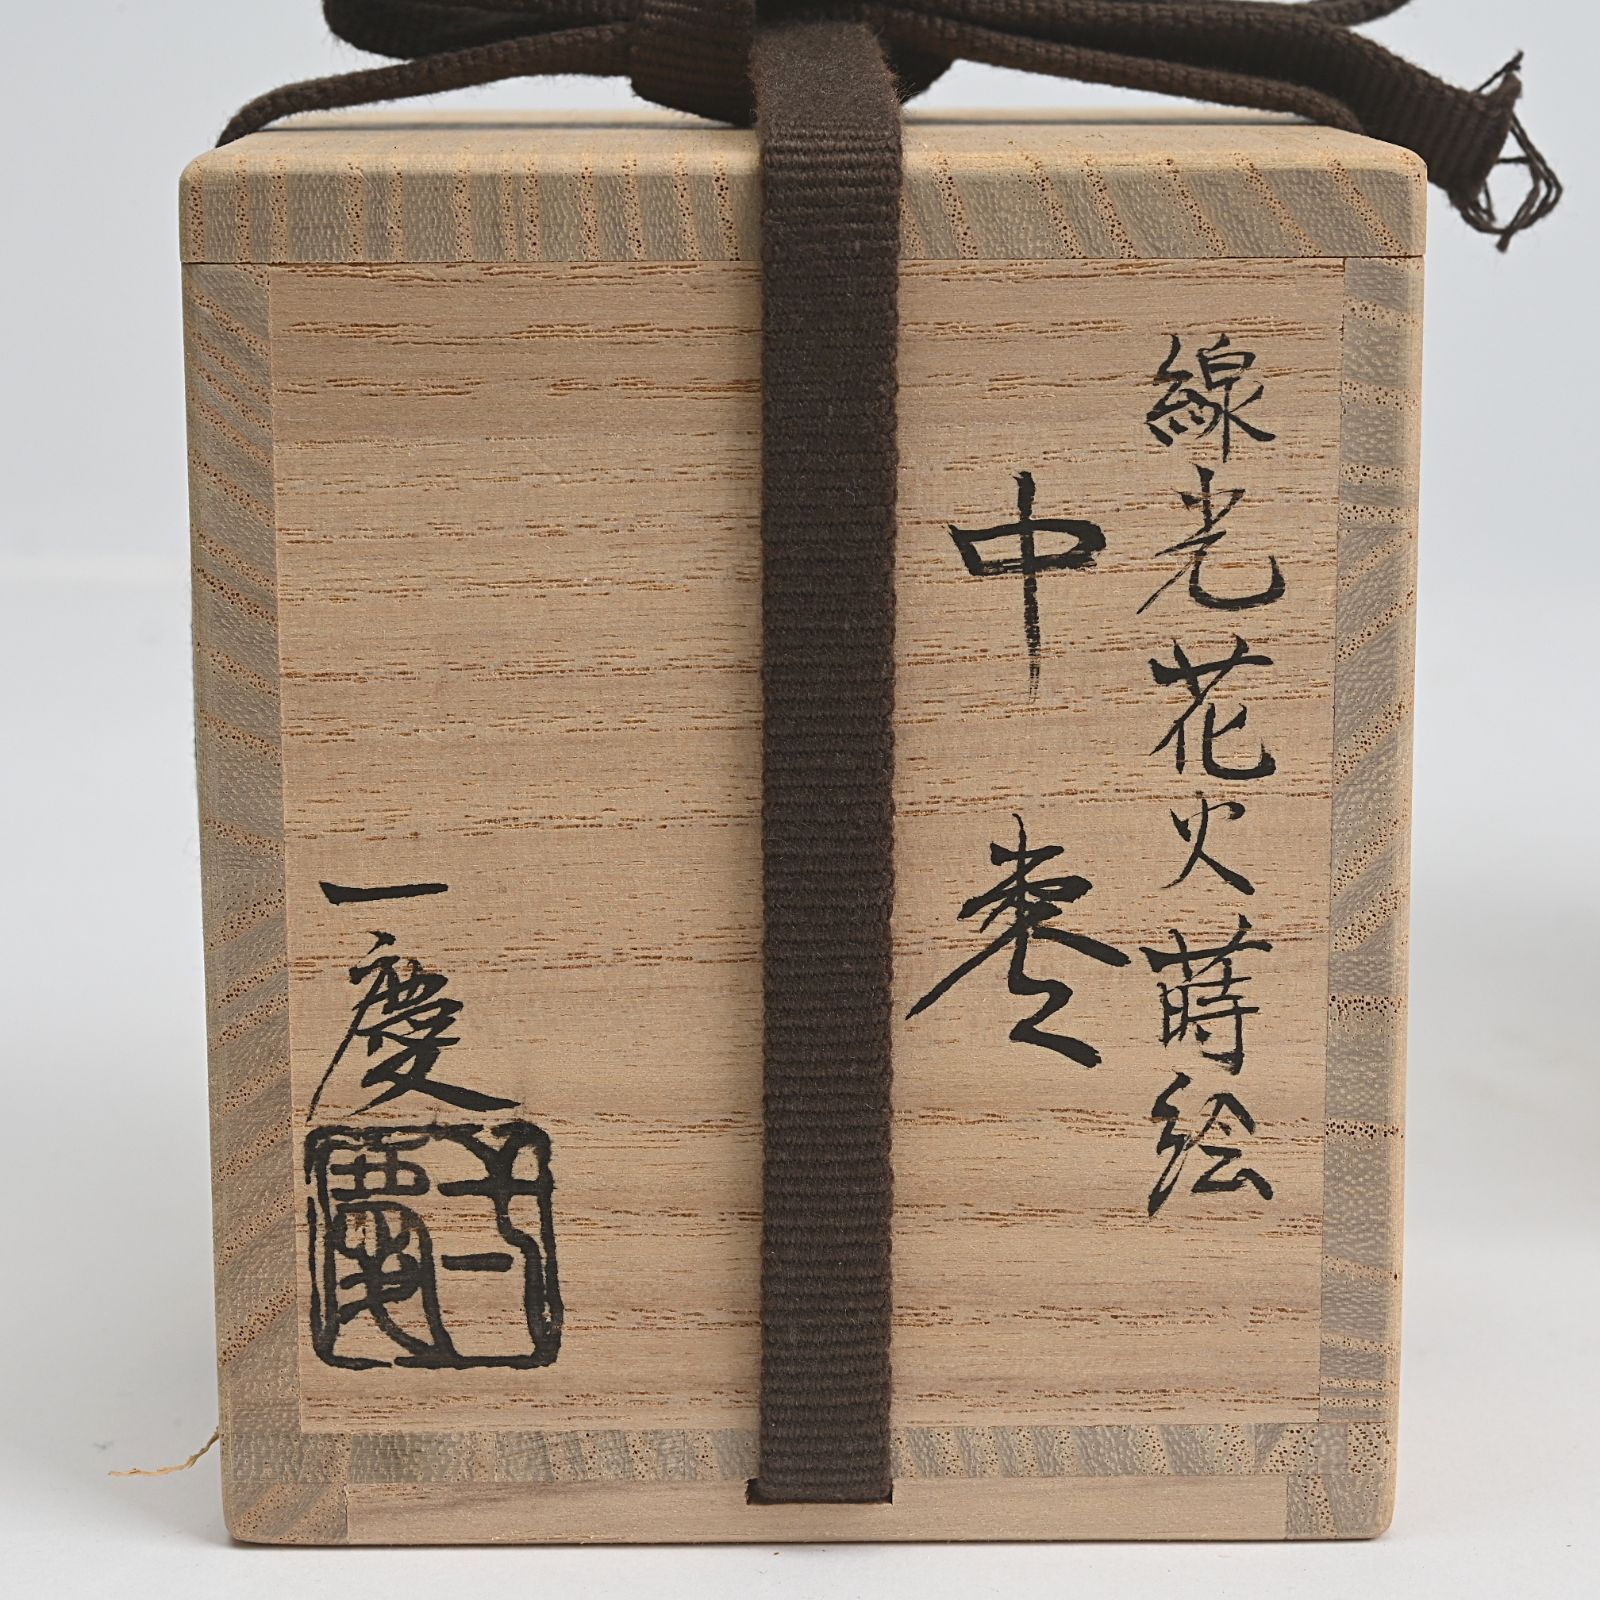 線光花火蒔絵
中棗
一慶